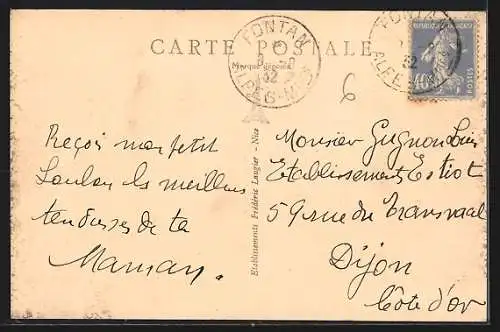 CARTE POSTALE
Marque déposée
FONTAN
32
ALPES-MMES
FONTAN
32
RÉPUBLIQUE FRANÇAISE
40c
POSTES
6
Reçois mon petit
Loulou les meilleurs
tendresses de ta
Maman.
Etablissements Frédéric Laugier - Nice
Monsieur Gugnon Louis
Etablissements Estiot
59 rue du Transvaal
Dijon
Côte d'or